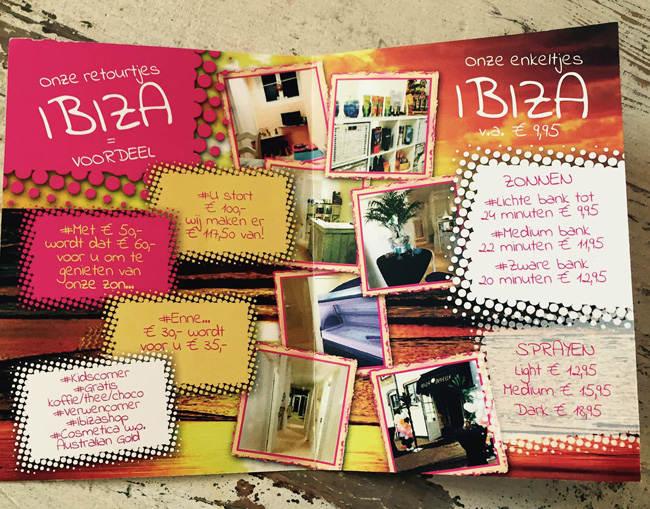 onze retourtjes
IBIZA
=
VOORDEEL
#U start
€ 100,-
wij maken er
€ 117,50 van!
#Met € 50,-
wordt dat € 60,-
voor u om te
genieten van
onze zon...
#Enne...
€ 30,- wordt
voor u € 35,-
#Kidscorner
#Gratis
koffie/thee/choco
#Verwencorner
#Ibizashop
#Cosmetica w.o.
Australian Gold
onze enkeltjes
IBIZA
v.a. € 9,95
ZONNEN
#Lichte bank tot
24 minuten € 9,95
#Medium bank
22 minuten € 11,95
#Zware bank
20 minuten € 12,95
SPRAYEN
Light € 12,95
Medium € 15,95
Dark € 18,95